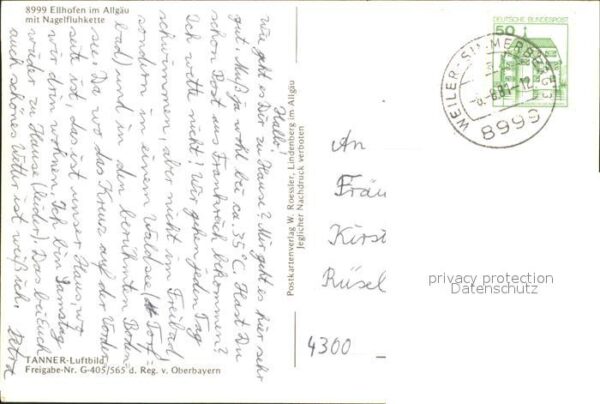 8999 Ellhofen im Allgäu
mit Nagelfluhkette
Hallo!
wie geht es Dir zu Hause? Mir geht es hier sehr
gut. Muß ja wohl bei ca. 35°C. Hast Du
schon Post aus Frankreich bekommen?
Ich wette nicht! Wir gehen jeden Tag
schwimmen, aber nicht im Freibad,
sondern in einem Waldsee (Torf-
bad) und in den berühmten Boden-
see. Da wo das Kreuz auf der Vorder-
seite ist, das ist unser Haus, wo
wir drin wohnen. Ich bin Samstag
wieder zu Hause (leider). Das bei Euch
auch schönes Wetter ist weiß ich. Petra
TANNER-Luftbild
Freigabe-Nr. G-405/565 d. Reg. v. Oberbayern
Postkartenverlag W. Roessler, Lindenberg im Allgäu
Jeglicher Nachdruck verboten
DEUTSCHE BUNDESPOST
50
WEILER-SIMMERBERG
8999
An
Fräu
Kirst
Rüsel
4300
privacy protection
Datenschutz